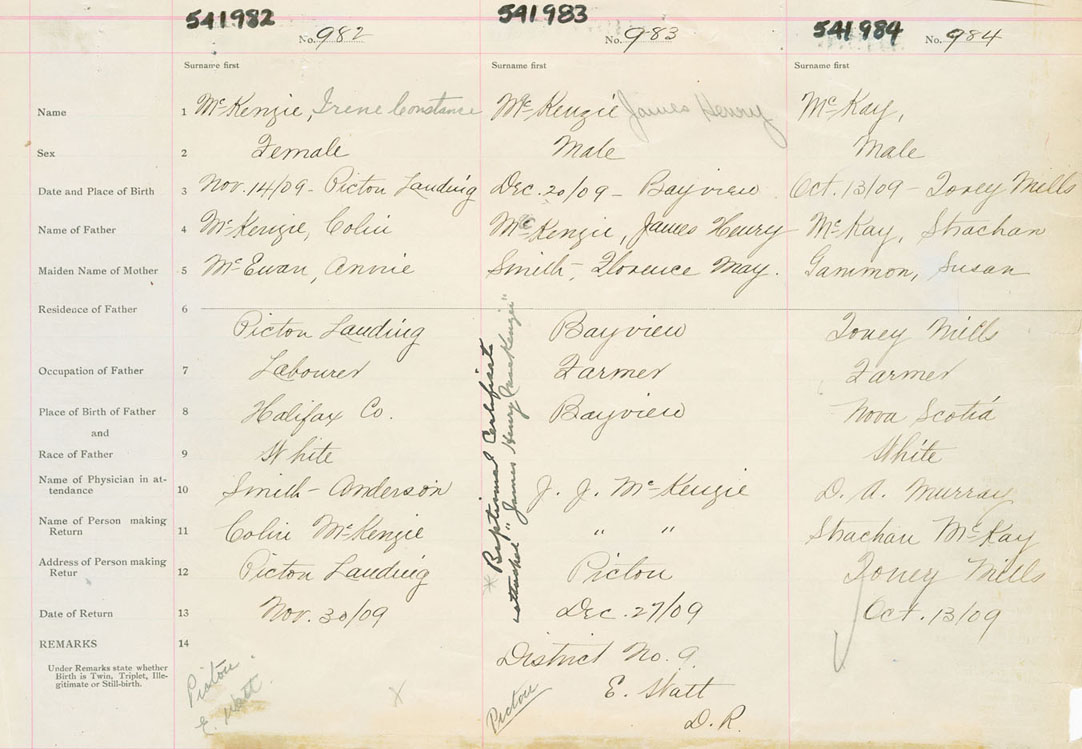 541982 541983 541984
No. 982 No. 983 No. 984
Surname first Surname first Surname first
Name 1 McKenzie, Irene Constance McKenzie James Henry McKay,
Sex 2 Female Male Male
Date and Place of Birth 3 Nov. 14/09 - Picton Landing Dec. 20/09 - Bayview Oct. 13/09 - Toney Mills
Name of Father 4 McKenzie, Colin McKenzie, James Henry McKay, Strachan
Maiden Name of Mother 5 McEwan, Annie Smith - Florence May. Gammon, Susan
Residence of Father 6
Picton Landing Bayview Toney Mills
Occupation of Father 7 Labourer Farmer Farmer
Place of Birth of Father 8 Halifax Co. Bayview Nova Scotia
and
Race of Father 9 White White
Name of Physician in at-
tendance 10 Smith - Anderson J. J. McKenzie D. A. Murray
Name of Person making
Return 11 Colin McKenzie " " Strachan McKay
Address of Person making
Retur 12 Picton Landing Picton Toney Mills
Date of Return 13 Nov. 30/09 Dec. 27/09 Oct. 13/09
REMARKS 14
Under Remarks state whether
Birth is Twin, Triplet, Ille-
gitimate or Still-birth.
Picton.
E. Watt
x
District No. 9
E. Watt
D. R.
Picton
* Baptismal Certificate
attached "James Henry MacKenzie"